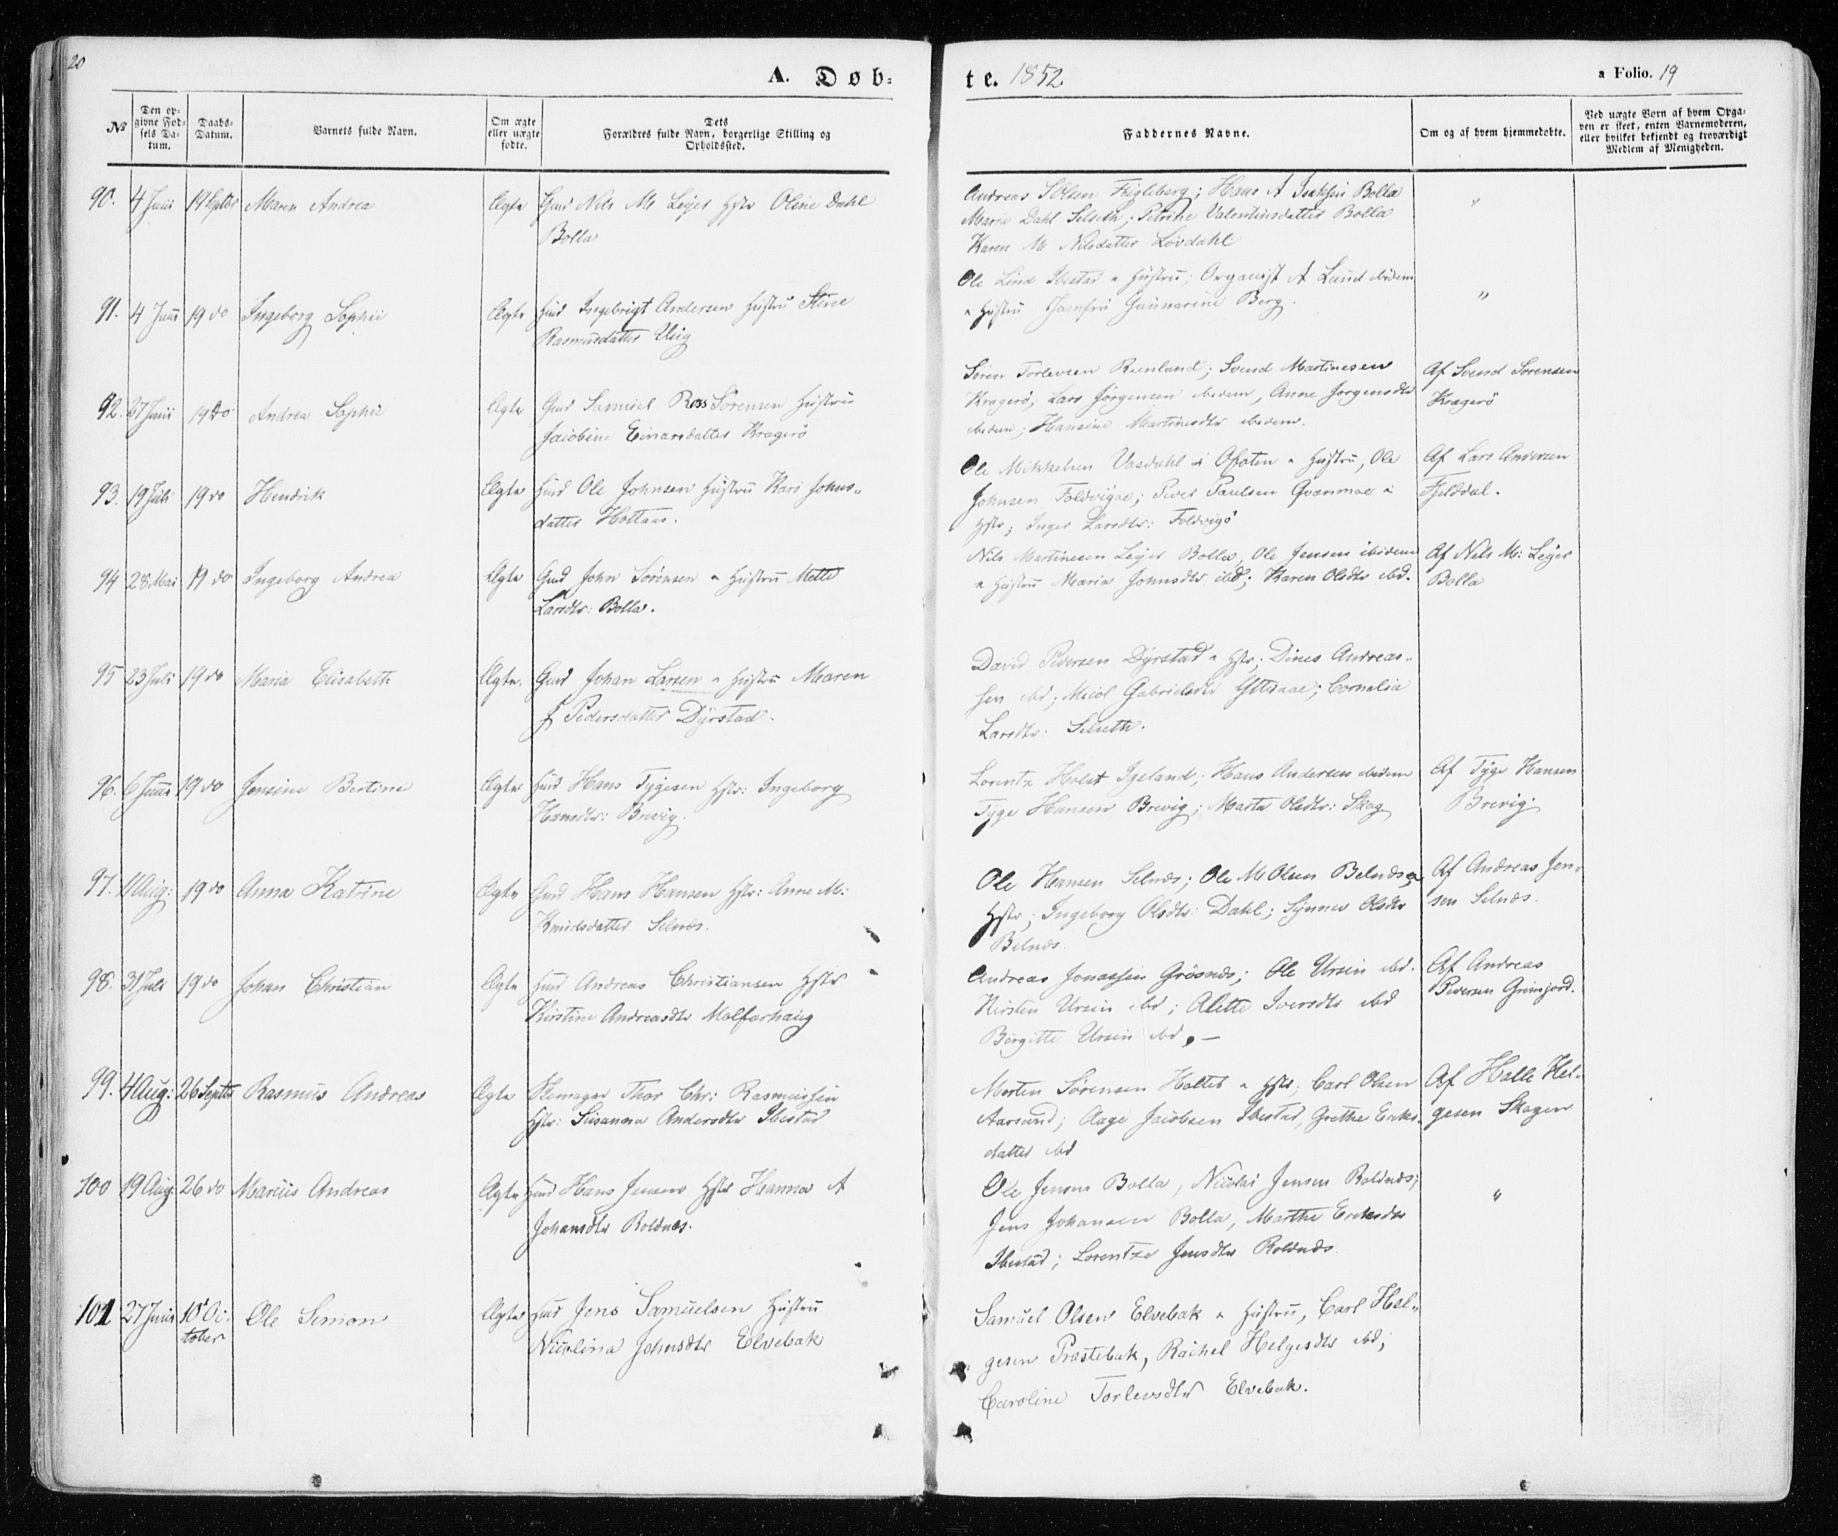 20
A. Døb-
te. 1852.
a Folio. 19
No
Den op-
givne Fød-
sels Da-
tum.
Daabs-
Datum.
Barnets fulde Navn.
Om ægte
eller uægte
fødte.
Dets
Forældres fulde Navn, borgerlige Stilling og
Opholdssted.
Faddernes Navne.
Om og af hvem hjemmedøbte.
Ved uægte Børn af hvem Opga-
ven er skeet, enten Barnemoderen,
eller hvilket bekjendt og troværdigt
Medlem af Menigheden.
90. 4 Juni 19 Septbr Maren Andrea Ægte Gmd Nils M Leyer Hstr Oline Dahl
Bolla
Andreas Olsen ; Hans A Isaksen Bolla
Maria Dahl Selseth; Petrine Valentinsdatter Bolla
Karen M Nilsdatter Løvdahl
"
91. 4 Juni 19 do Ingeborg Sophie Ægte Hmd Ingebrigt Andersen Hustru Stine
Rasmusdatter Uvig
Ole Lind Ibestad & Hustru; Organist A Lund ibidem
& Hustru Jomfru Gunnarine Berg.
"
92. 27 Juni 19 do Andrea Sophie Ægte Gmd Samuel Ross Sørensen Hustru
Jacobine Einarsdatter Kragerø
Søren Torlevsen Runland; Svend Martinesen
Kragerø; Lars Jørgensen ibidem, Anne Jørgensdtr
ibidem; Hansine Martinesdtr ibidem.
Af Svend Sørensen
Kragerø
93. 19 Juli 19 do Hendrik Ægte Hmd Ole Johnsen Hustru Kari Johns-
datter Holtaas.
Ole Mikkelsen Vasdahl i Ofoten & Hustru, Ole
Johnsen Foldvigøe; Peder Paulsen Qvænmoe &
Hstr; Inger Larsdtr: Foldvigø
Af Lars Andersen
Fjelddal.
94 28 Mai 19 do Ingeborg Andrea Ægte Gmd John Sørensen & Hustru Mette
Larsdtr: Bolla.
Nils Martinesen Leyer Bolla, Ole Jensen ibidem
& Hustru Maria Johnsdtr ibd; Karen Olsdtr ibd.
Af Nils M: Leyer
Bolla
95 23 Juli 19 do Maria Elisabeth Ægte. Gmd Johan Larsen & Hustru Maren
Pedersdatter Dyrstad.
David Pedersen Dyrstad & Hstr; Dines Andreas-
sen ibd; Gabrielsdtr ; Cornelia
Larsdtr: Selseth.
96. 6 Juni 19 do Jensine Bertine Ægte Hmd Hans Tygesen Hstr: Ingeborg
Hansdtr: Brevig.
Lorentz Holst Igeland; Hans Andersen ibidem
Tyge Hansen Brevig; Marta Olsdtr: Skog
Af Tyge Hansen
Brevig.
97. 11 Aug: 19 do Anna Katrine Ægte Gmd Hans Hansen Hstr: Anne M:
Knudsdatter Selnæs.
Ole Hansen Selnæs; Ole M Olsen Belnæs &
Hstr; Ingeborg Olsdtr: Dahl; Synnev Olsdtr
Belnæs.
Af Andreas Jen-
sen Selnæs.
98. 31 Juli 19 do Johan Christian Ægte Hmd Andreas Christiansen Hstr
Kirstine Andreasdtr Molfarhaug
Andreas Jonassen Grøsnæs; Ole Ursin ibd.
Kirsten Ursin ibd; Alette Iversdtr ibd
Birgitte Ursin ibd. —
Af Andreas
Pedersen Grønsjord.
99. 4 Aug: 26 Septbr Rasmus Andreas Ægte Skomager Thor Chr: Rasmussen
Hstr: Susanna Andersdtr Ibestad
Morten Sørensen Holtet & Hstr; Carl Olsen
Aarsand; Aage Jacobsen Ibestad, Grethe Eriks-
datter ibd
Af Halle Hel-
gesen Skogen
100 19 Aug 26 do Marius Andreas Ægte Hmd Hans Jensen Hstr Hanna A
Johansdtr Roldnæs.
Ole Jensen Bolla, Nicolai Jensen Roldnæs;
Jens Johansen Bolla, Marthe Eriksdtr
Ibestad; Lorentze Jensdtr Roldnæs.
"
101 27 Juni 10d Oc-
tober Ole Simon Ægte Hmd Jens Samuelsen Hustru
Nicolina Johnsdtr Elvebak
Samuel Olsen Elvebak & Hustru, Carl Hel-
gesen Præstebak, Rachel Helgesdtr ibd;
Caroline Torlevsdtr Elvebak.